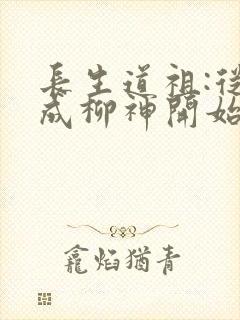 長生道祖:從
成柳神開始
龕焰猶青